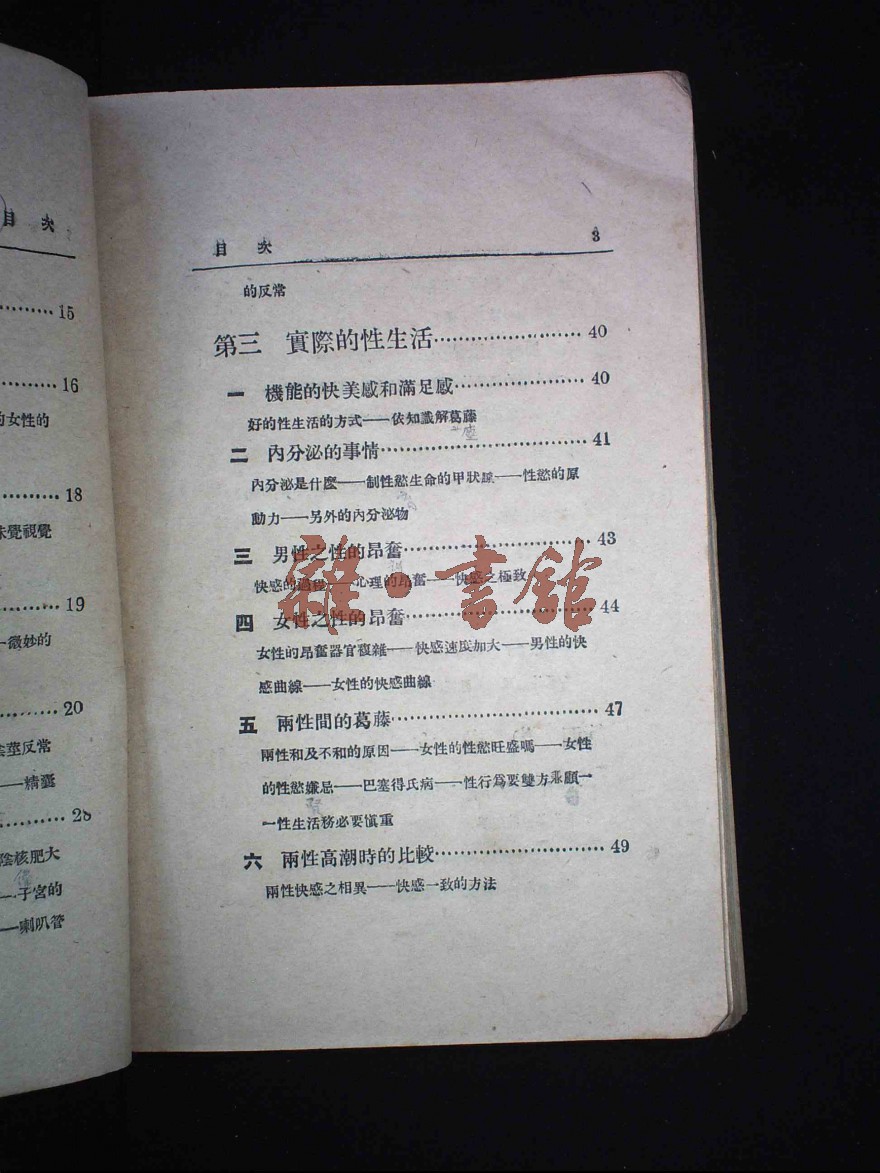 目 次
15
16
的女性的
18
味覺視覺
19
一微妙的
20
陰莖反常
——精囊
28
陰核肥大
—子宮的
—喇叭管
目 次 3
的反常
第三 實際的性生活 40
一 機能的快美感和滿足感 40
好的性生活的方式——依知識解葛藤
二 內分泌的事情 41
內分泌是什麼——制性慾生命的甲狀腺——性慾的原
動力——另外的內分泌物
三 男性之性的昂奮 43
快感的過程——心理的昂奮——快感之極致
四 女性之性的昂奮 44
女性的昂奮器官複雜——快感速度加大——男性的快
感曲線——女性的快感曲線
五 兩性間的葛藤 47
兩性和及不和的原因——女性的性慾旺盛嗎——女性
的性慾嫌忌——巴塞得氏病——性行爲要雙方兼顧一
一性生活務必要慎重
六 兩性高潮時的比較 49
兩性快感之相異——快感一致的方法
雜·書館